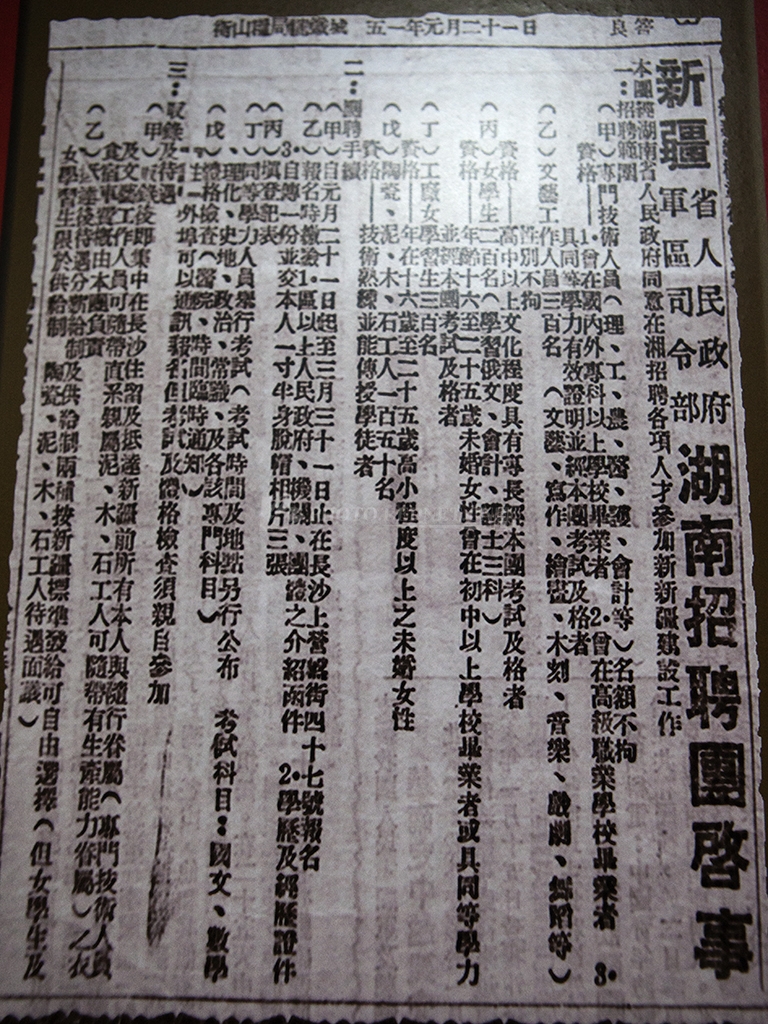 衡山
五一年元月二十一日
良答
新疆省人民政府
軍區司令部
湖南招聘團啓事
本團經湖南省人民政府同意在湘招聘各項人才參加新新疆建設工作
一：招聘範圍
（甲）專門技術人員（理、工、農、醫、護、會計等）名額不拘
資格——1.曾在國內外專科以上學校畢業者 2.曾在高級職業學校畢業者 3.
具同等學力有效證明並經本團考試及格者
（乙）文藝工作人員三百名（文藝、寫作、繪畫、木刻、音樂、戲劇、舞蹈等）
性別不拘
資格——高中以上文化程度具有專長經本團考試及格者
（丙）女學生二百名（學習俄文、會計、護士三科）
資格——年齡十六至二十五歲未婚女性曾在初中以上學校畢業者或具同等學力
並經本團考試及格者
（丁）工廠女學習生三百名
資格——年在十六歲至二十五歲高小程度以上之未婚女性
（戊）陶瓷、泥、木、石工人一百五十名
資格——技術熟練並能傳授學徒者
二：聘手續
（甲）自元月二十一日起至三月三十一日止在長沙上營街四十七號報名
（乙）報名時繳驗1.區以上人民政府、機關、團體之介紹函件 2.學歷及經歷證件
3.自傳一份並交本人一寸半身脫帽相片三張
（丙）填登記表
（丁）同等學力人員舉行考試（考試時間及地點另行公布 考試科目：國文、數學
、理化、史地、政治、常識、及各該專門科目）
（戊）體格檢查（醫院、時間臨時通知）
外埠可以通訊報名但考試及體格檢查須親自參加
三：取錄及待遇
（甲）後即集中在長沙住留及抵達新疆前所有本人與隨行眷屬（專門技術人員
及文藝工作人員可隨帶直系親屬泥、木、石工人可隨帶有生產能力眷屬）之衣
食宿車費概由本團負責
（乙）抵達後待遇分薪給制及供給制兩種按新疆標準發給可自由選擇（但女學生及
女學習生限於供給制 陶瓷、泥、木、石工人待遇面議）